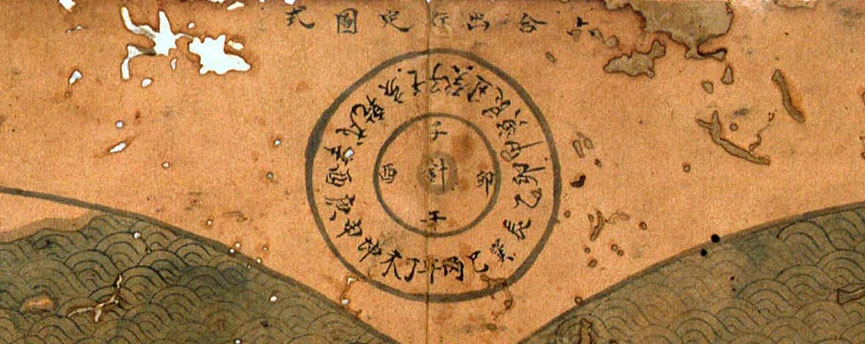 六合出行定圖式
子癸丑艮寅甲卯乙辰巽巳丙午丁未坤申庚酉辛戌乾亥壬
子
酉針卯
午